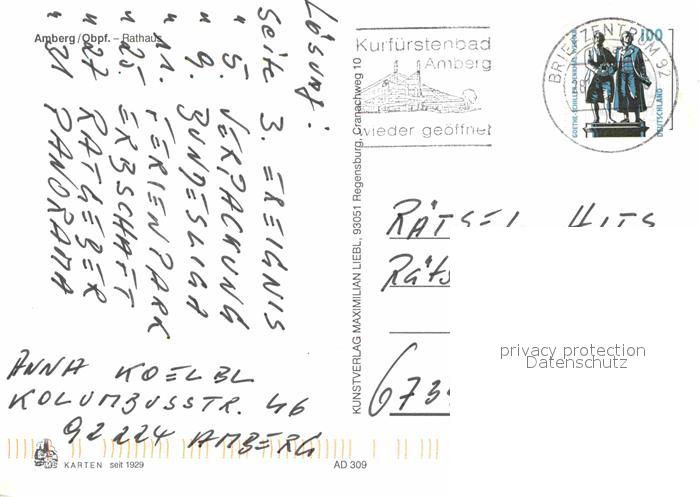 Amberg/Obpf. – Rathaus
Lösung:
Seite 3. EREIGNIS
" 5. VERPACKUNG
" 9. BUNDESLIGA
" 11. FERIENPARK
" 25. ERBSCHAFT
" 27 RATGEBER
" 31 PANORAMA
ANNA KOELBL
KOLUMBUSSTR. 46
92224 AMBERG
KARTEN seit 1929
AD 309
KUNSTVERLAG MAXIMILIAN LIEBL, 93051 Regensburg, Cranachweg 10
Kurfürstenbad
Amberg
wieder geöffnet
BRIEFZENTRUM 92
100
GOETHE-SCHILLER-DENKMAL
DEUTSCHLAND
RÄTSEL HITS
Räts
673
privacy protection
Datenschutz